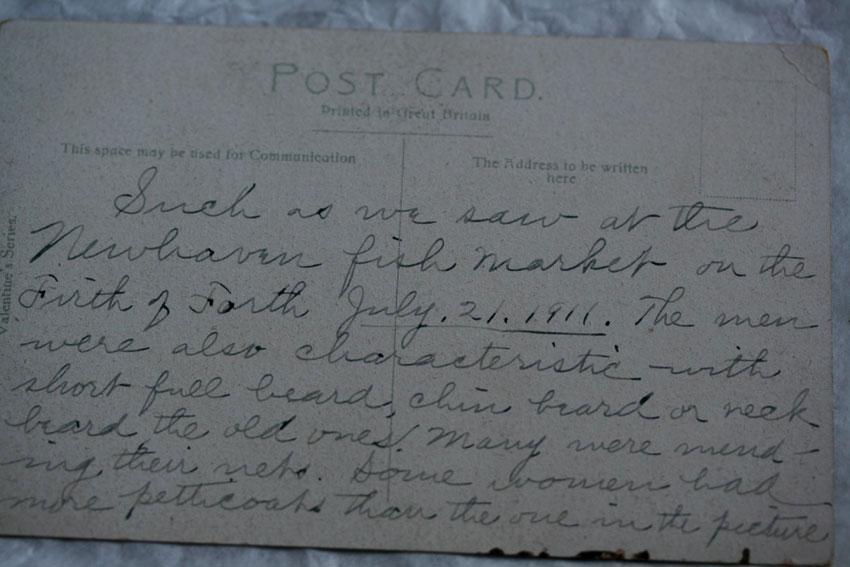 POST CARD.
Printed in Great Britain
This space may be used for Communication
The Address to be written
here
Valentine's Series.
Such as we saw at the
Newhaven fish market on the
Firth of Forth July. 21. 1911. The men
were also characteristic - with
short full beard, chin beard or neck
beard the old ones. Many were mend-
ing their nets. Some women had
more petticoats than the one in the picture